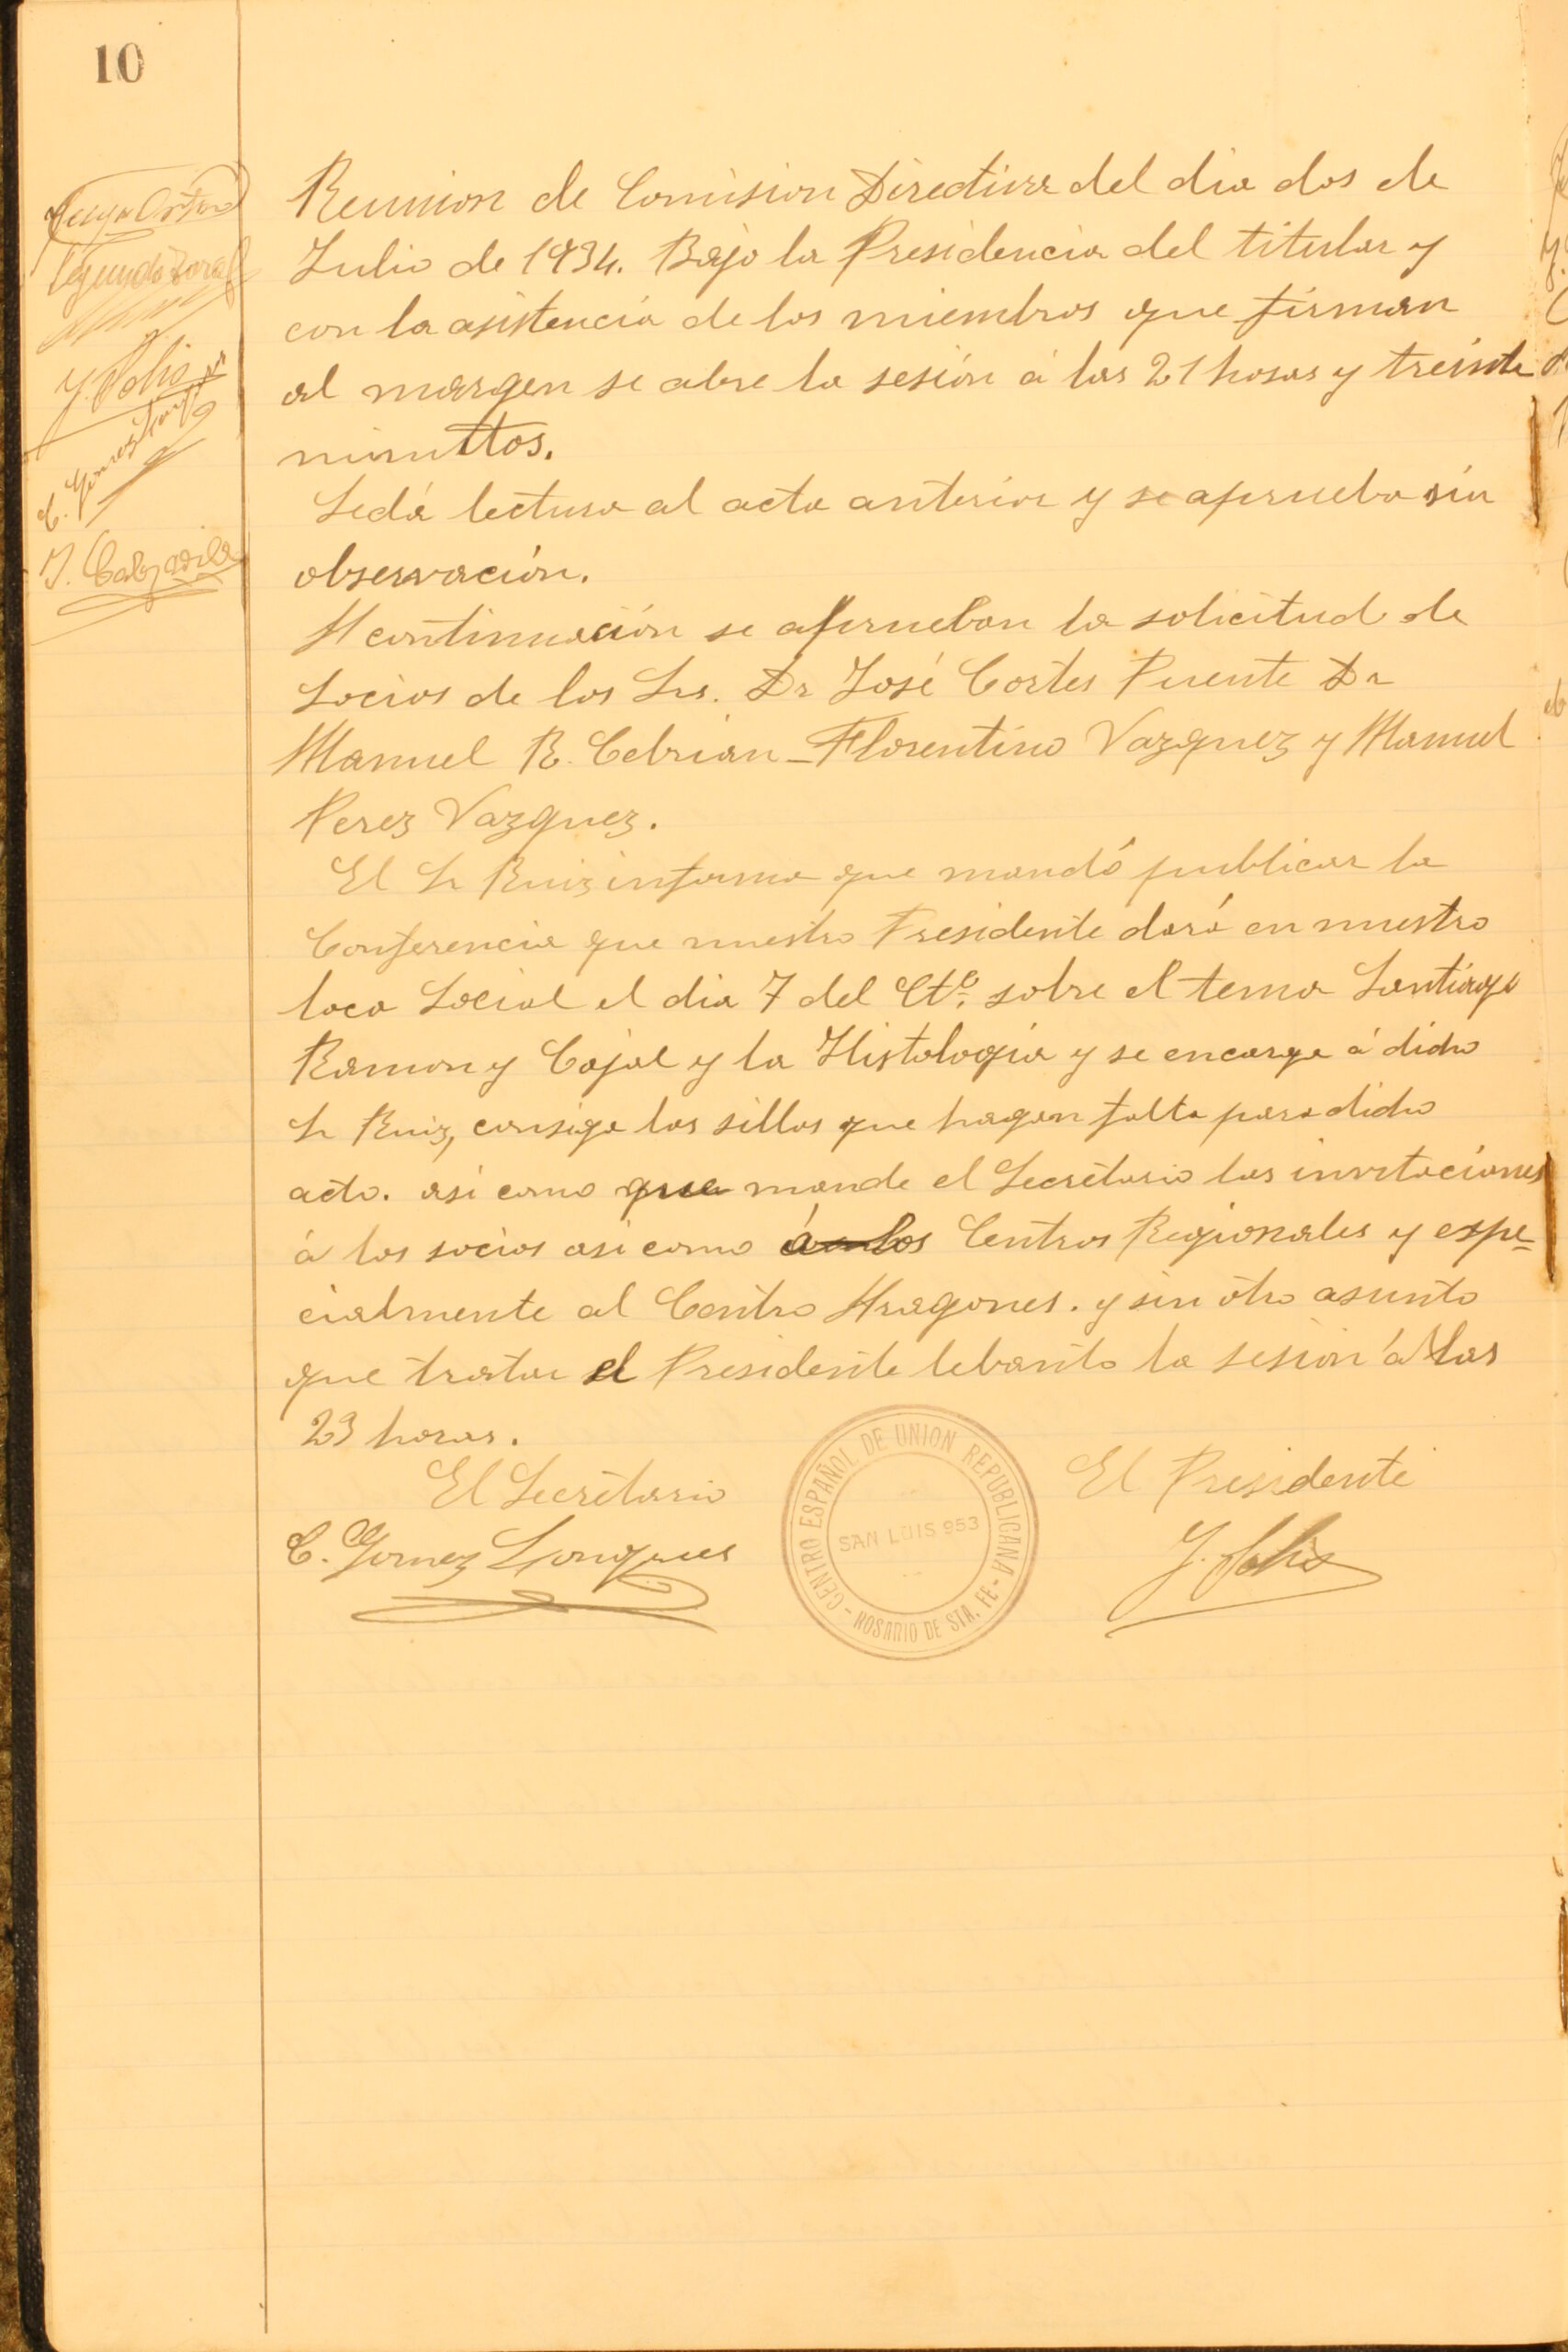 10
Reunion de Comision Directiva del dia dos de
Julio de 1934. Bajo la Presidencia del titular y
con la asistencia de los miembros que firman
al margen se abre la sesión á las 21 horas y treinta
minuttos.
Se dá lectura al acta anterior y se aprueba sin
observación.
A continuación se aprueban la solicitud de
Socios de los Srs. Dr José Cortes Puente Dr
Manuel R. Cebrian - Florentino Vazquez y Manuel
Perez Vazquez.
El Sr Ruiz informa que mandó publicar la
Conferencia que nuestro Presidente dará en nuestro
loca Social el dia 7 del Cte. sobre el tema Santiago
Ramon y Cajal y la Histologia y se encarga á dicho
Sr Ruiz, consiga las sillas que hagan falta para dicho
acto. asi como que mande el Secretario las invitaciones
á los socios asi como á los Centros Regionales y espe=
cialmente al Centro Aragones. y sin otro asunto
que tratar el Presidente lebanto la sesion á las
23 horas.
El Secretario
El Presidente
C. Gomez
J. Solis
CENTRO ESPAÑOL DE UNION REPUBLICANA - ROSARIO DE STA. FE -
SAN LUIS 953
Segundo Toral
J. Solis
C. Gomez
J. Calzadilla